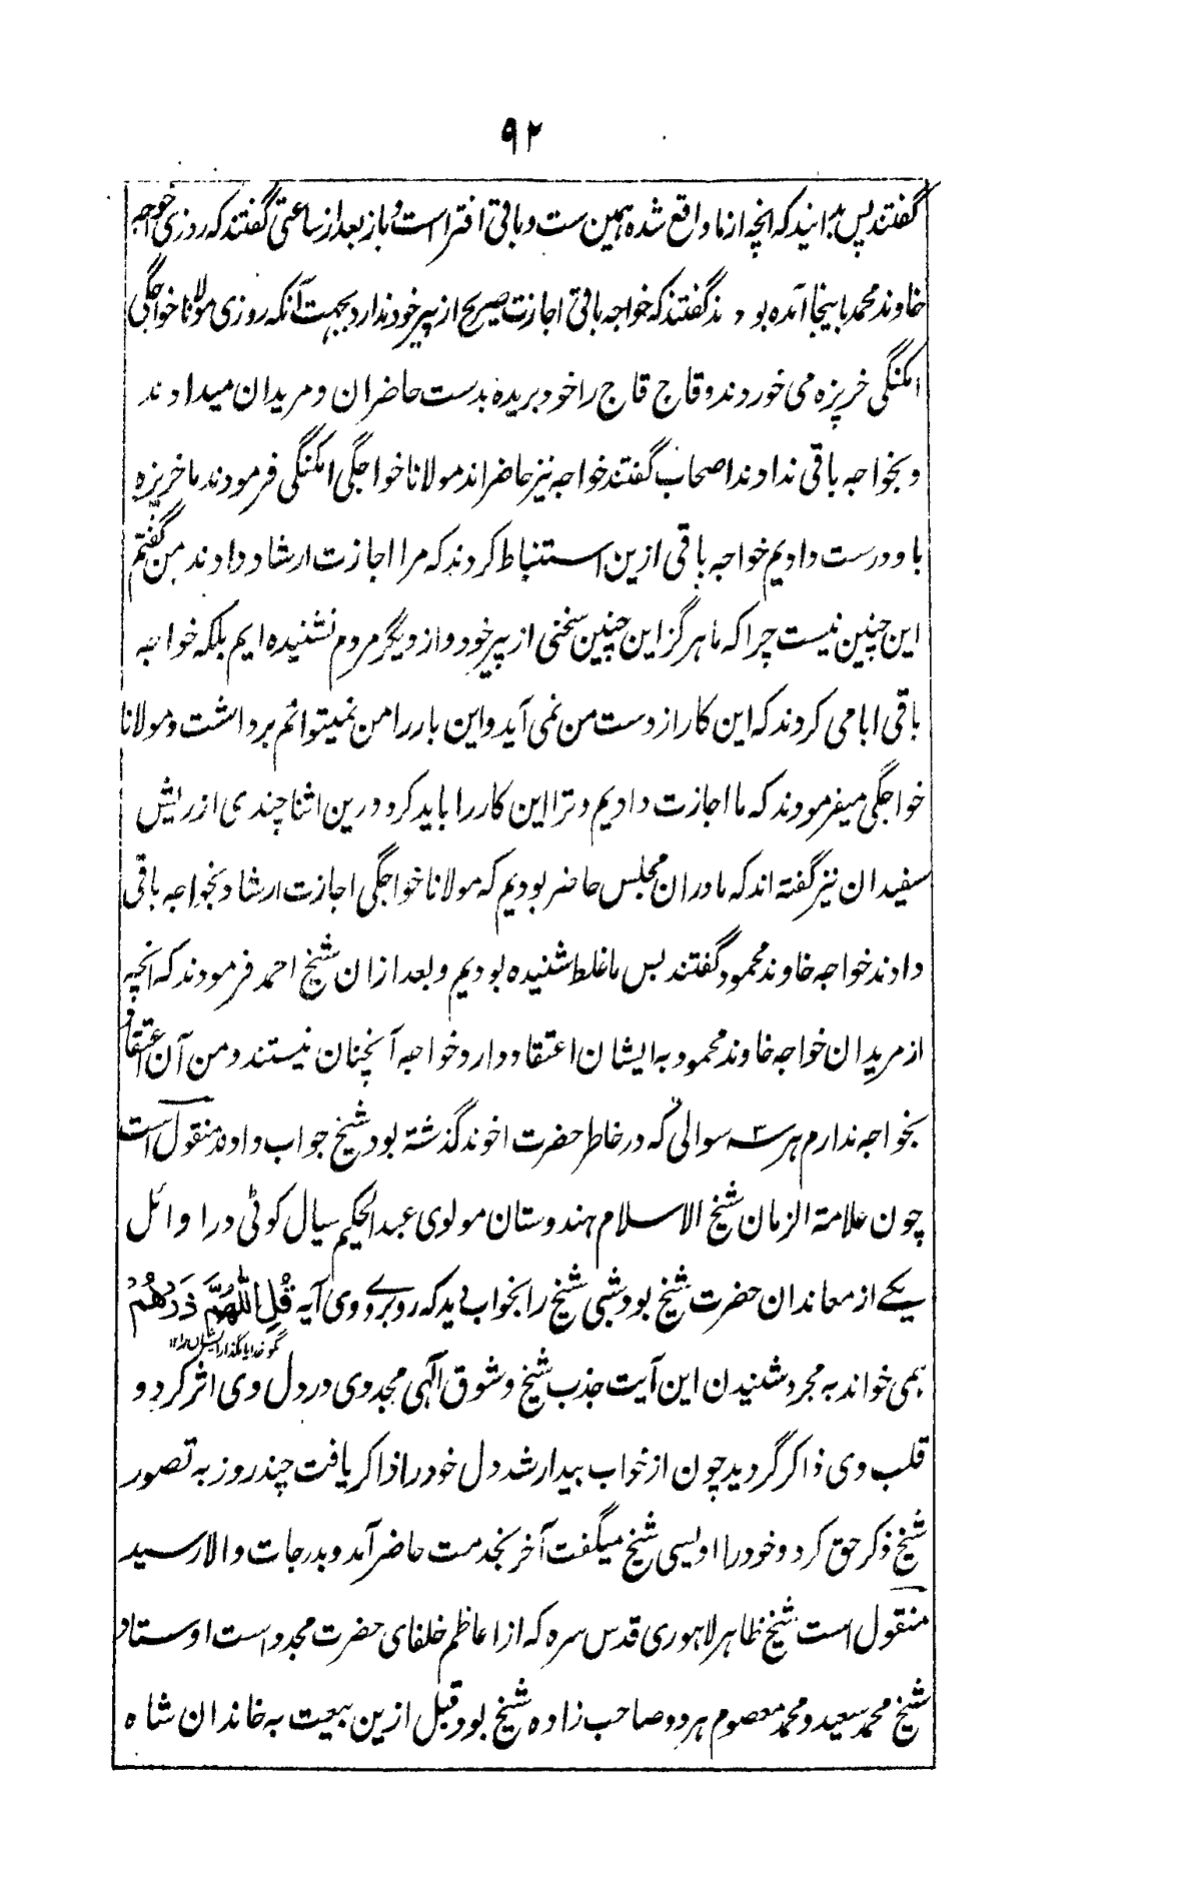 ۹۲
گفتند پس بدانید که انچه از ما واقع شده همین ست و باقی افترا است و باز بعد از ساعتی گفتند که روزی خواجه
خاوند محمد باینجا آمده بودند گفتند که خواجه باقی اجازت صریح از پیر خود ندارد بجهت آنکه روزی مولانا خواجگی
امکنگی خرپزه می خوردند و قاج قاج را خود بریده بدست حاضران و مریدان میدادند
و بخواجه باقی ندادند اصحاب گفتند خواجه نیز حاضر اند مولانا خواجگی امکنگی فرمودند ما خرپزه
باو درست دادیم خواجه باقی ازین استنباط کردند که مرا اجازت ارشاد دادند من گفتم
این چنین نیست چرا که ما هرگز این چنین سخنی از پیر خود و از دیگر مردم نشنیده ایم بلکه خواجه
باقی ابا می کردند که این کار از دست من نمی آید و این بار را من نمیتوانم برداشت و مولانا
خواجگی میفرمودند که ما اجازت دادیم و ترا این کار را باید کرد درین اثنا چندی از ریش
سفیدان نیز گفته اند که ما دران مجلس حاضر بودیم که مولانا خواجگی اجازت ارشاد بخواجه باقی
دادند خواجه خاوند محمود گفتند پس ما غلط شنیده بودیم و بعد ازان شیخ احمد فرمودند که انچه
از مریدان خواجه خاوند محمود به ایشان اعتقاد دارد خواجه آنچنان نیستند و من آن اعتقاد
بخواجه ندارم هر سه سوالی که در خاطر حضرت اخوند گذشته بود شیخ جواب داده منقول است
چون علامة الزمان شیخ الاسلام هندوستان مولوی عبدالحکیم سیال کوٹی در اوائل
یکے از معاندان حضرت شیخ بود شبی شیخ را بخواب دید که روبروے وی آیه قُلِ اللّٰهُمَّ ذَرْهُمْ
گو خدا یا بگذار ایشان را ۱۲
همی خواند به مجرد شنیدن این آیت جذب شیخ و شوق آلهی مجددی در دل وی اثر کرد و
قلب وی ذاکر گردید چون از خواب بیدار شد دل خود را ذاکر یافت چند روز به تصور
شیخ ذکر حق کرد و خود را اویسی شیخ میگفت آخر بخدمت حاضر آمد و بدرجات والا رسید
منقول است شیخ ظاهر لاهوری قدس سره که از اعاظم خلفای حضرت مجدد است اوستاد
شیخ محمد سعید و محمد معصوم هر دو صاحب زاده شیخ بود قبل ازین بیعت به خاندان شاه